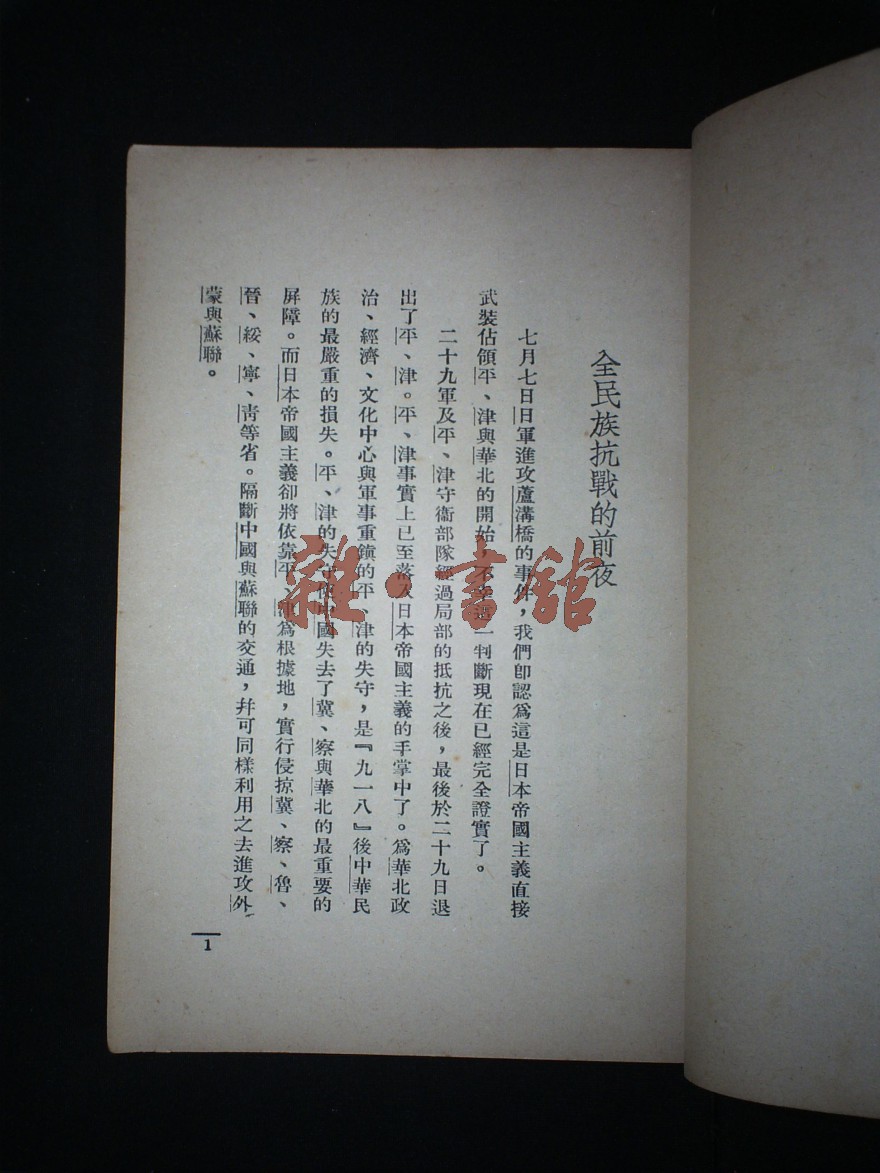 全民族抗戰的前夜
七月七日日軍進攻蘆溝橋的事件，我們卽認爲這是日本帝國主義直接
武裝佔領平、津與華北的開始，不幸這一判斷現在已經完全證實了。
二十九軍及平、津守衞部隊經過局部的抵抗之後，最後於二十九日退
出了平、津。平、津事實上已至落入日本帝國主義的手掌中了。爲華北政
治、經濟、文化中心與軍事重鎭的平、津的失守，是『九一八』後中華民
族的最嚴重的損失。平、津的失守使中國失去了冀、察與華北的最重要的
屏障。而日本帝國主義卻將依靠平、津爲根據地，實行侵掠冀、察、魯、
晉、綏、寧、靑等省。隔斷中國與蘇聯的交通，幷可同樣利用之去進攻外
蒙與蘇聯。
1
雜·書館